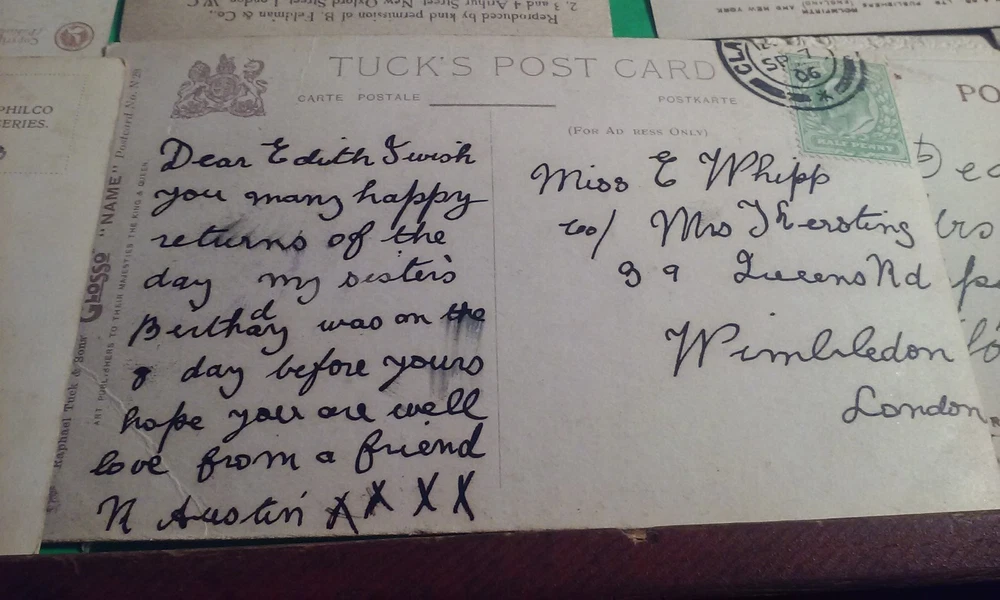 Reproduced by kind permission of B. Feldman & Co.,
2, 3 and 4 Arthur Street, New Oxford Street, London, W.C.
PUBLISHERS
HOLMFIRTH
(ENGLAND)
AND NEW YORK
PHILCO
SERIES.
TUCK'S POST CARD
CARTE POSTALE
POSTKARTE
(FOR AD RESS ONLY)
SP 7
06
HALF PENNY
PO
Raphael Tuck & Sons' "GLOSSO" "NAME" Postcard No.
ART PUBLISHERS TO THEIR MAJESTIES THE KING & QUEEN.
Dear Edith I wish
you many happy
returns of the
day my sister's
Birthday was on the
day before yours
hope you are well
love from a friend
N Austin X X X X
Miss E Whipp
co/ Mrs Kersting
39 Queens Rd
Wimbledon
London